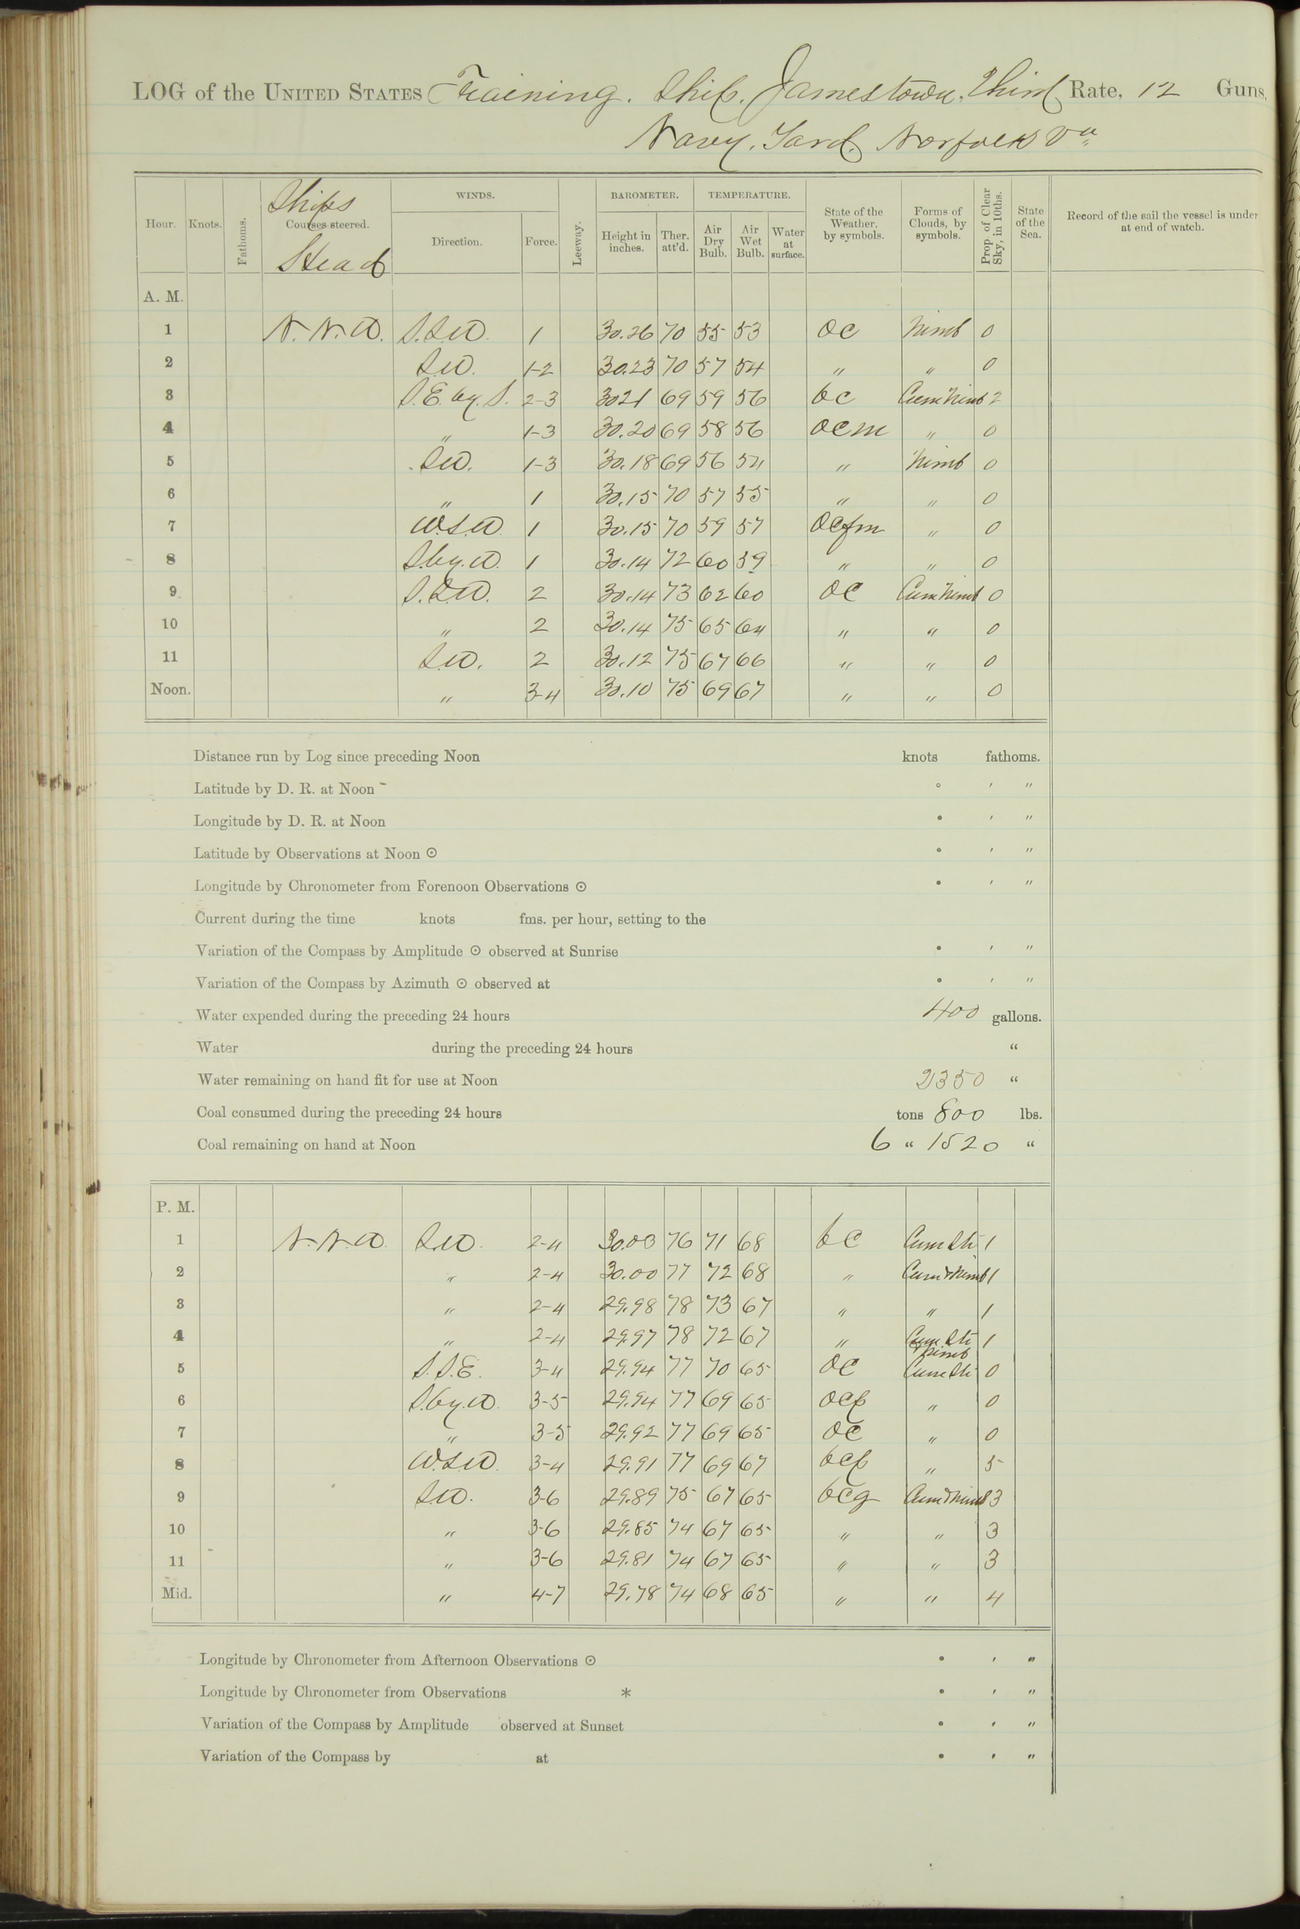 LOG of the UNITED STATES Training Ship Jamestown, Third Rate, 12 Guns,
Navy Yard Norfolk Va
Hour. Knots. Fathoms. Ships Courses steered. Head WINDS. Direction. Force. Leeway. BAROMETER. Height in inches. Ther. att'd. TEMPERATURE. Air Dry Bulb. Air Wet Bulb. Water at surface. State of the Weather, by symbols. Forms of Clouds, by symbols. Prop. of Clear Sky, in 10ths. State of the Sea. Record of the sail the vessel is under at end of watch.
A. M.
1 N.N.W. S.SW 1 30.26 70 55 53 oc Nimb 0
2 SW. 1-2 30.23 70 57 54 " " 0
3 S.E. by S. 2-3 3021 69 59 56 bc Cum Nimb 2
4 " 1-3 30.20 69 58 56 ocm " 0
5 SW. 1-3 30.18 69 56 54 " Nimb 0
6 " 1 30.15 70 57 55 " " 0
7 W.S.W 1 30.15 70 59 57 ocfm " 0
8 S.by.W. 1 30.14 72 60 59 " " 0
9 S.SW. 2 30.14 73 62 60 oc Cum Nimb 0
10 " 2 30.14 75 65 64 " " 0
11 SW. 2 30.12 75 67 66 " " 0
Noon. " 3-4 30.10 75 69 67 " " 0
Distance run by Log since preceding Noon knots fathoms.
Latitude by D. R. at Noon ° ′ ″
Longitude by D. R. at Noon ° ′ ″
Latitude by Observations at Noon ⊙ ° ′ ″
Longitude by Chronometer from Forenoon Observations ⊙ ° ′ ″
Current during the time knots fms. per hour, setting to the
Variation of the Compass by Amplitude ⊙ observed at Sunrise ° ′ ″
Variation of the Compass by Azimuth ⊙ observed at ° ′ ″
Water expended during the preceding 24 hours 400 gallons.
Water during the preceding 24 hours “
Water remaining on hand fit for use at Noon 2350 “
Coal consumed during the preceding 24 hours tons 800 lbs.
Coal remaining on hand at Noon 6 “ 1520 “
P. M.
1 N.N.W. SW. 2-4 30.00 76 71 68 bc Cum Sti 1
2 " 2-4 30.00 77 72 68 " Cum Nimb 1
3 " 2-4 29.98 78 73 67 " " 1
4 " 2-4 29.97 78 72 67 " Cum Sti Nimb 1
5 S.S.E. 3-4 29.94 77 70 65 oc Cum Sti 0
6 S.by.W. 3-5 29.94 77 69 65 ocp " 0
7 " 3-5 29.92 77 69 65 oc " 0
8 W.SW. 3-4 29.91 77 69 67 bcp " 5
9 SW. 3-6 29.89 75 67 65 bcq Cum Nimb 3
10 " 3-6 29.85 74 67 65 " " 3
11 " 3-6 29.81 74 67 65 " " 3
Mid. " 4-7 29.78 74 68 65 " " 4
Longitude by Chronometer from Afternoon Observations ⊙ ° ′ ″
Longitude by Chronometer from Observations * ° ′ ″
Variation of the Compass by Amplitude observed at Sunset ° ′ ″
Variation of the Compass by at ° ′ ″